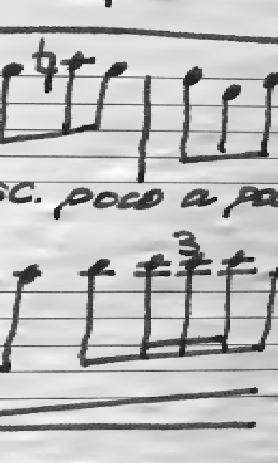 sc. poco a po
3